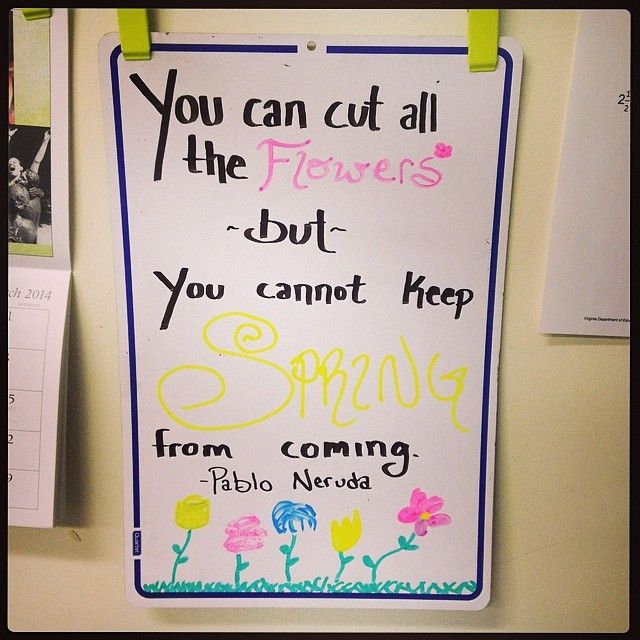 You can cut all
the Flowers
~but~
You cannot keep
SPRING
from coming.
-Pablo Neruda
Quartet
ch 2014
SATURDAY
1
5
2
9
2 1/2
Virginia Department of Educ